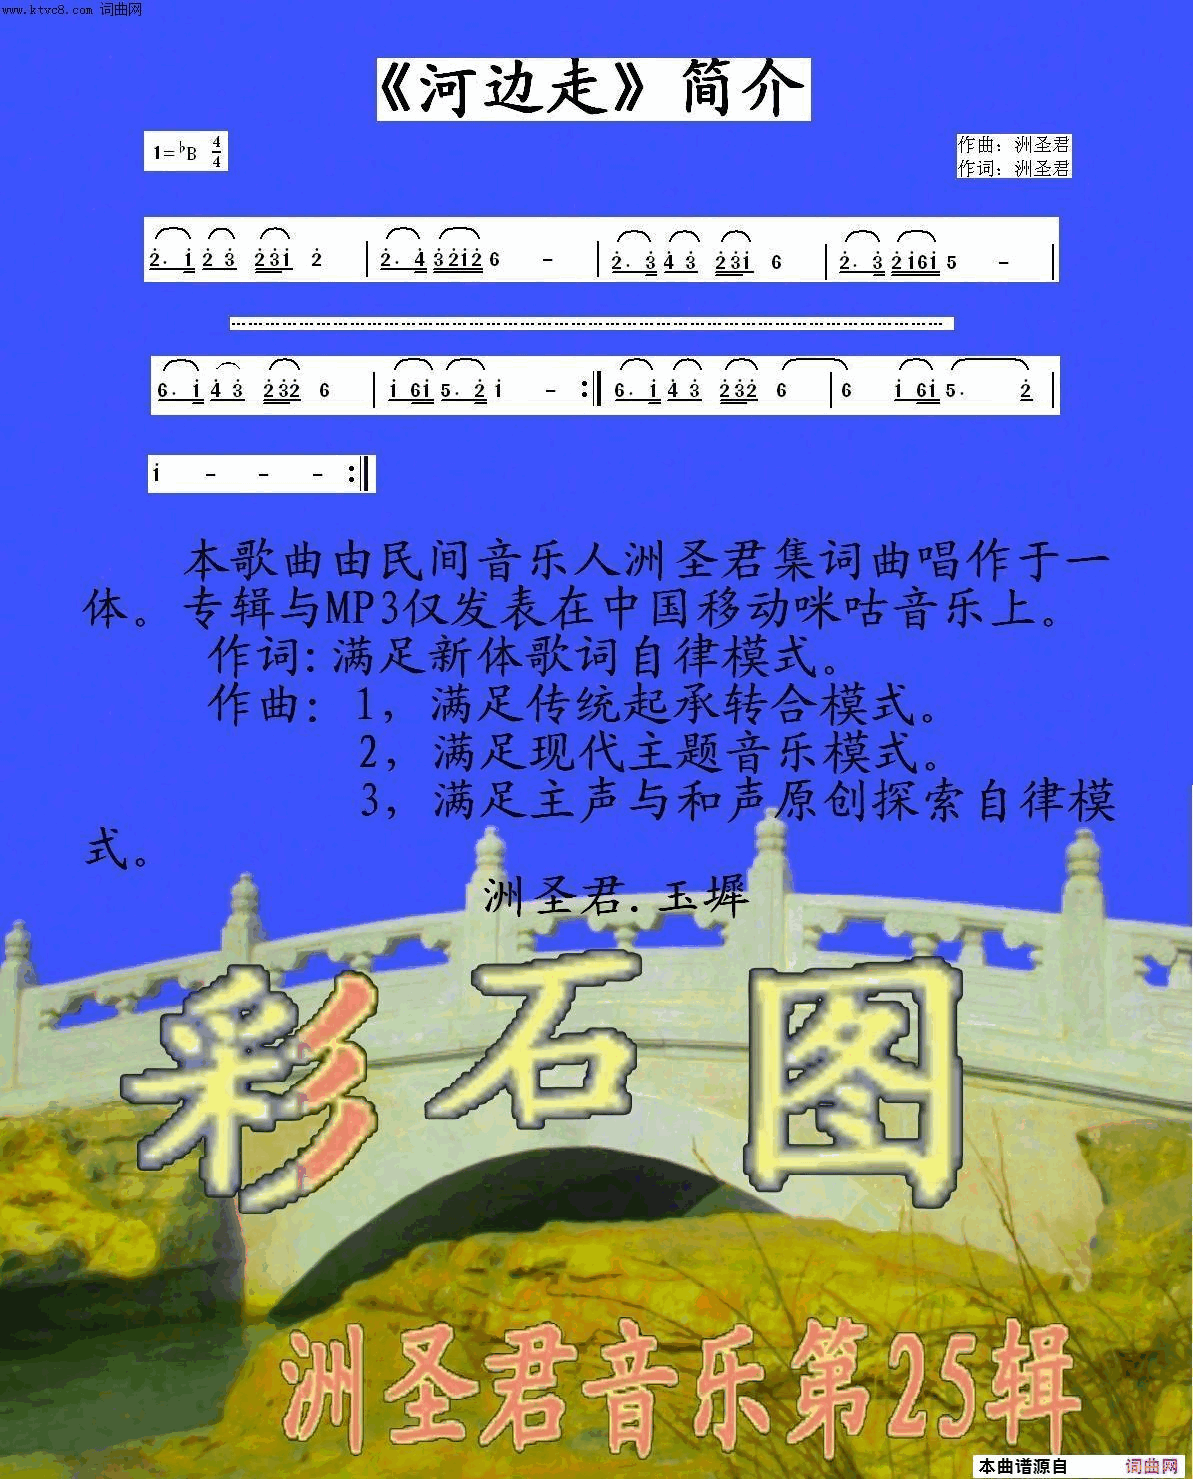 www.ktvc8.com 词曲网
《河边走》简介
1=♭B 4/4
作曲：洲圣君
作词：洲圣君
2̇. 1̇ 2̇ 3̇ 2̇3̇1̇ 2̇ | 2̇. 4̇ 3̇2̇1̇2̇ 6 - | 2̇. 3̇ 4̇ 3̇ 2̇3̇1̇ 6 | 2̇. 3̇ 2̇1̇61̇ 5 - |
6. 1̇ 4̇ 3̇ 2̇3̇2̇ 6 | 1̇ 61̇ 5. 2̇ 1̇ - :‖ 6. 1̇ 4̇ 3̇ 2̇3̇2̇ 6 | 6 1̇ 61̇ 5. 2̇ |
1̇ - - - :‖
本歌曲由民间音乐人洲圣君集词曲唱作于一
体。专辑与MP3仅发表在中国移动咪咕音乐上。
作词：满足新体歌词自律模式。
作曲：1，满足传统起承转合模式。
2，满足现代主题音乐模式。
3，满足主声与和声原创探索自律模
式。
洲圣君.玉墀
彩石图
洲圣君音乐第25辑
本曲谱源自 词曲网